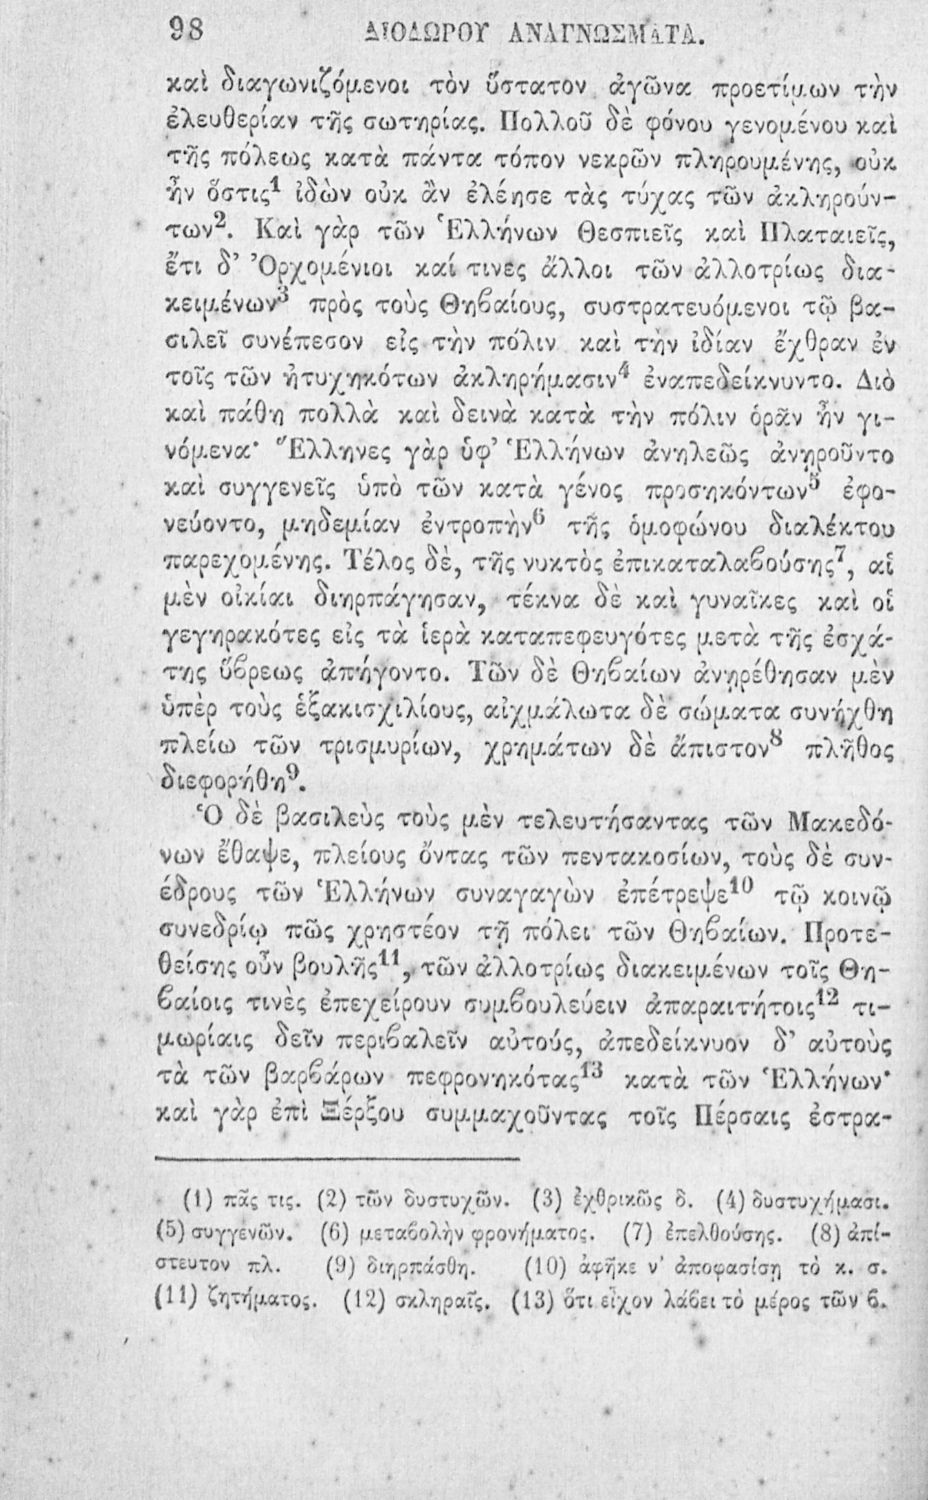 98 ΔΙΟΔΩΡΟΥ ΑΝΑΓΝΩΣΜΑΤΑ.
καὶ διαγωνιζόμενοι τὸν ὕστατον ἀγῶνα προετίμων τὴν
ἐλευθερίαν τῆς σωτηρίας. Πολλοῦ δὲ φόνου γενομένου καὶ
τῆς πόλεως κατὰ πάντα τόπον νεκρῶν πληρουμένης, οὐκ
ἦν ὅστις¹ ἰδὼν οὐκ ἂν ἐλέησε τὰς τύχας τῶν ἀκληρούν-
των². Καὶ γὰρ τῶν Ἑλλήνων Θεσπιεῖς καὶ Πλαταιεῖς,
ἔτι δ' Ὀρχομένιοι καί τινες ἄλλοι τῶν ἀλλοτρίως δια-
κειμένων³ πρὸς τοὺς Θηβαίους, συστρατευόμενοι τῷ βα-
σιλεῖ συνέπεσον εἰς τὴν πόλιν καὶ τὴν ἰδίαν ἔχθραν ἐν
τοῖς τῶν ἠτυχηκότων ἀκληρήμασιν⁴ ἐναπεδείκνυντο. Διὸ
καὶ πάθη πολλὰ καὶ δεινὰ κατὰ τὴν πόλιν ὁρᾶν ἦν γι-
νόμενα· Ἕλληνες γὰρ ὑφ' Ἑλλήνων ἀνηλεῶς ἀνῃροῦντο
καὶ συγγενεῖς ὑπὸ τῶν κατὰ γένος προσηκόντων⁵ ἐφο-
νεύοντο, μηδεμίαν ἐντροπὴν⁶ τῆς ὁμοφώνου διαλέκτου
παρεχομένης. Τέλος δὲ, τῆς νυκτὸς ἐπικαταλαβούσης⁷, αἱ
μὲν οἰκίαι διηρπάγησαν, τέκνα δὲ καὶ γυναῖκες καὶ οἱ
γεγηρακότες εἰς τὰ ἱερὰ καταπεφευγότες μετὰ τῆς ἐσχά-
της ὕβρεως ἀπήγοντο. Τῶν δὲ Θηβαίων ἀνῃρέθησαν μὲν
ὑπὲρ τοὺς ἑξακισχιλίους, αἰχμάλωτα δὲ σώματα συνήχθη
πλείω τῶν τρισμυρίων, χρημάτων δὲ ἄπιστον⁸ πλῆθος
διεφορήθη⁹.
Ὁ δὲ βασιλεὺς τοὺς μὲν τελευτήσαντας τῶν Μακεδό-
νων ἔθαψε, πλείους ὄντας τῶν πεντακοσίων, τοὺς δὲ συν-
έδρους τῶν Ἑλλήνων συναγαγὼν ἐπέτρεψε¹⁰ τῷ κοινῷ
συνεδρίῳ πῶς χρηστέον τῇ πόλει τῶν Θηβαίων. Προτε-
θείσης οὖν βουλῆς¹¹, τῶν ἀλλοτρίως διακειμένων τοῖς Θη-
βαίοις τινὲς ἐπεχείρουν συμβουλεύειν ἀπαραιτήτοις¹² τι-
μωρίαις δεῖν περιβαλεῖν αὐτούς, ἀπεδείκνυον δ' αὐτοὺς
τὰ τῶν βαρβάρων πεφρονηκότας¹³ κατὰ τῶν Ἑλλήνων·
καὶ γὰρ ἐπὶ Ξέρξου συμμαχοῦντας τοῖς Πέρσαις ἐστρα-
(1) πᾶς τις. (2) τῶν δυστυχῶν. (3) ἐχθρικῶς δ. (4) δυστυχήμασι.
(5) συγγενῶν. (6) μεταβολὴν φρονήματος. (7) ἐπελθούσης. (8) ἀπί-
στευτον πλ. (9) διηρπάσθη. (10) ἀφῆκε ν' ἀποφασίσῃ τὸ κ. σ.
(11) ζητήματος. (12) σκληραῖς. (13) ὅτι εἶχον λάβει τὸ μέρος τῶν β.